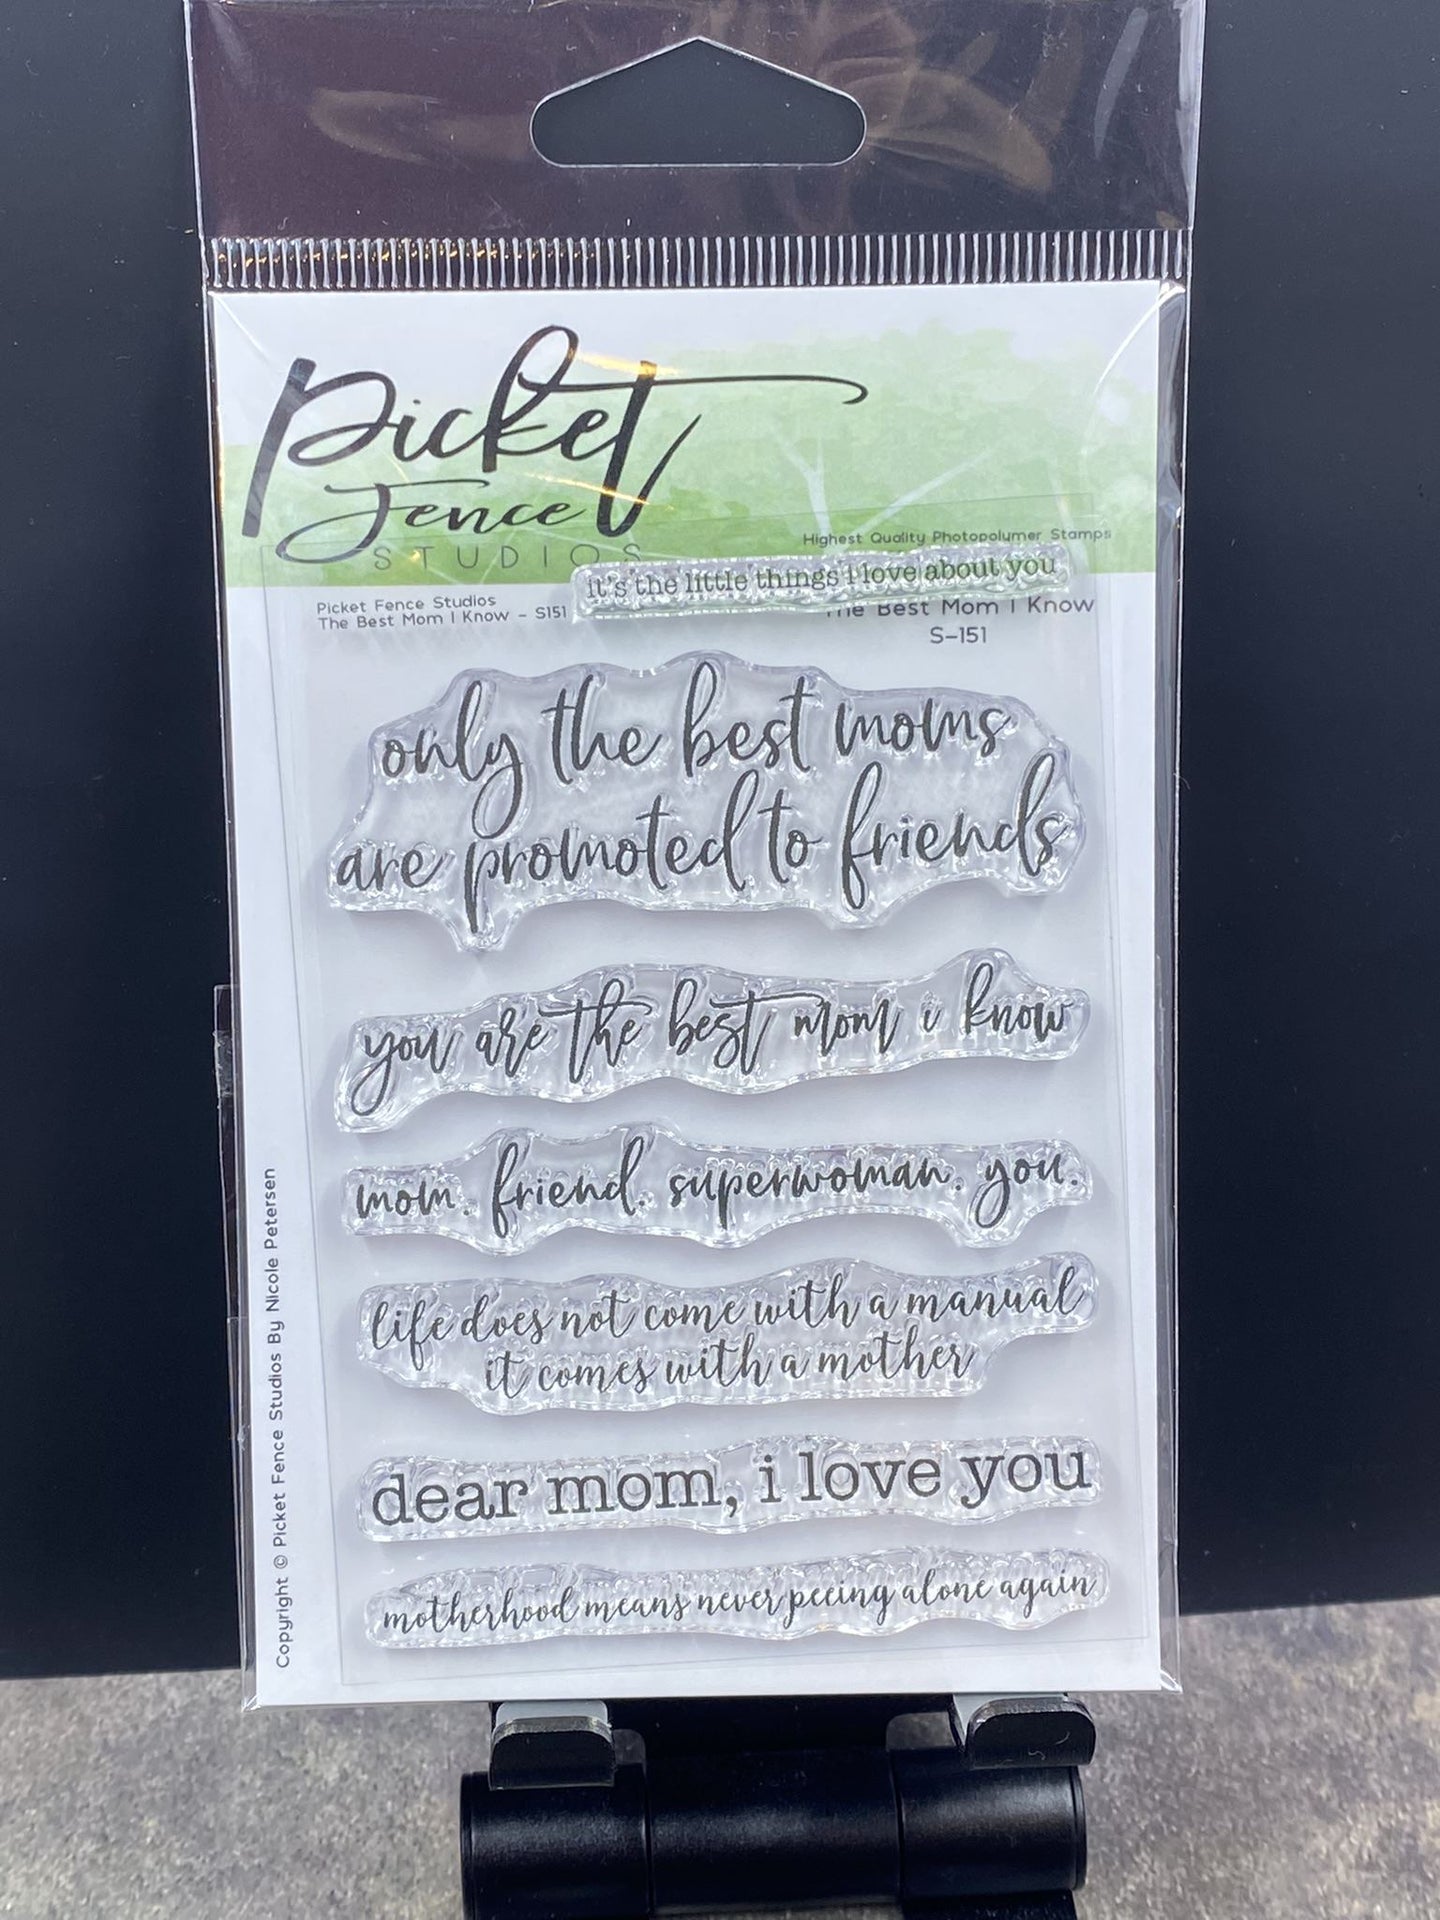 Picket
Fence
STUDIOS
Highest Quality Photopolymer Stamps
it's the little things i love about you
Picket Fence Studios
The Best Mom I Know - S151
The Best Mom I Know
S-151
only the best moms
are promoted to friends
you are the best mom i know
mom. friend. superwoman. you.
life does not come with a manual
it comes with a mother
dear mom, i love you
motherhood means never peeing alone again
Copyright © Picket Fence Studios By Nicole Petersen